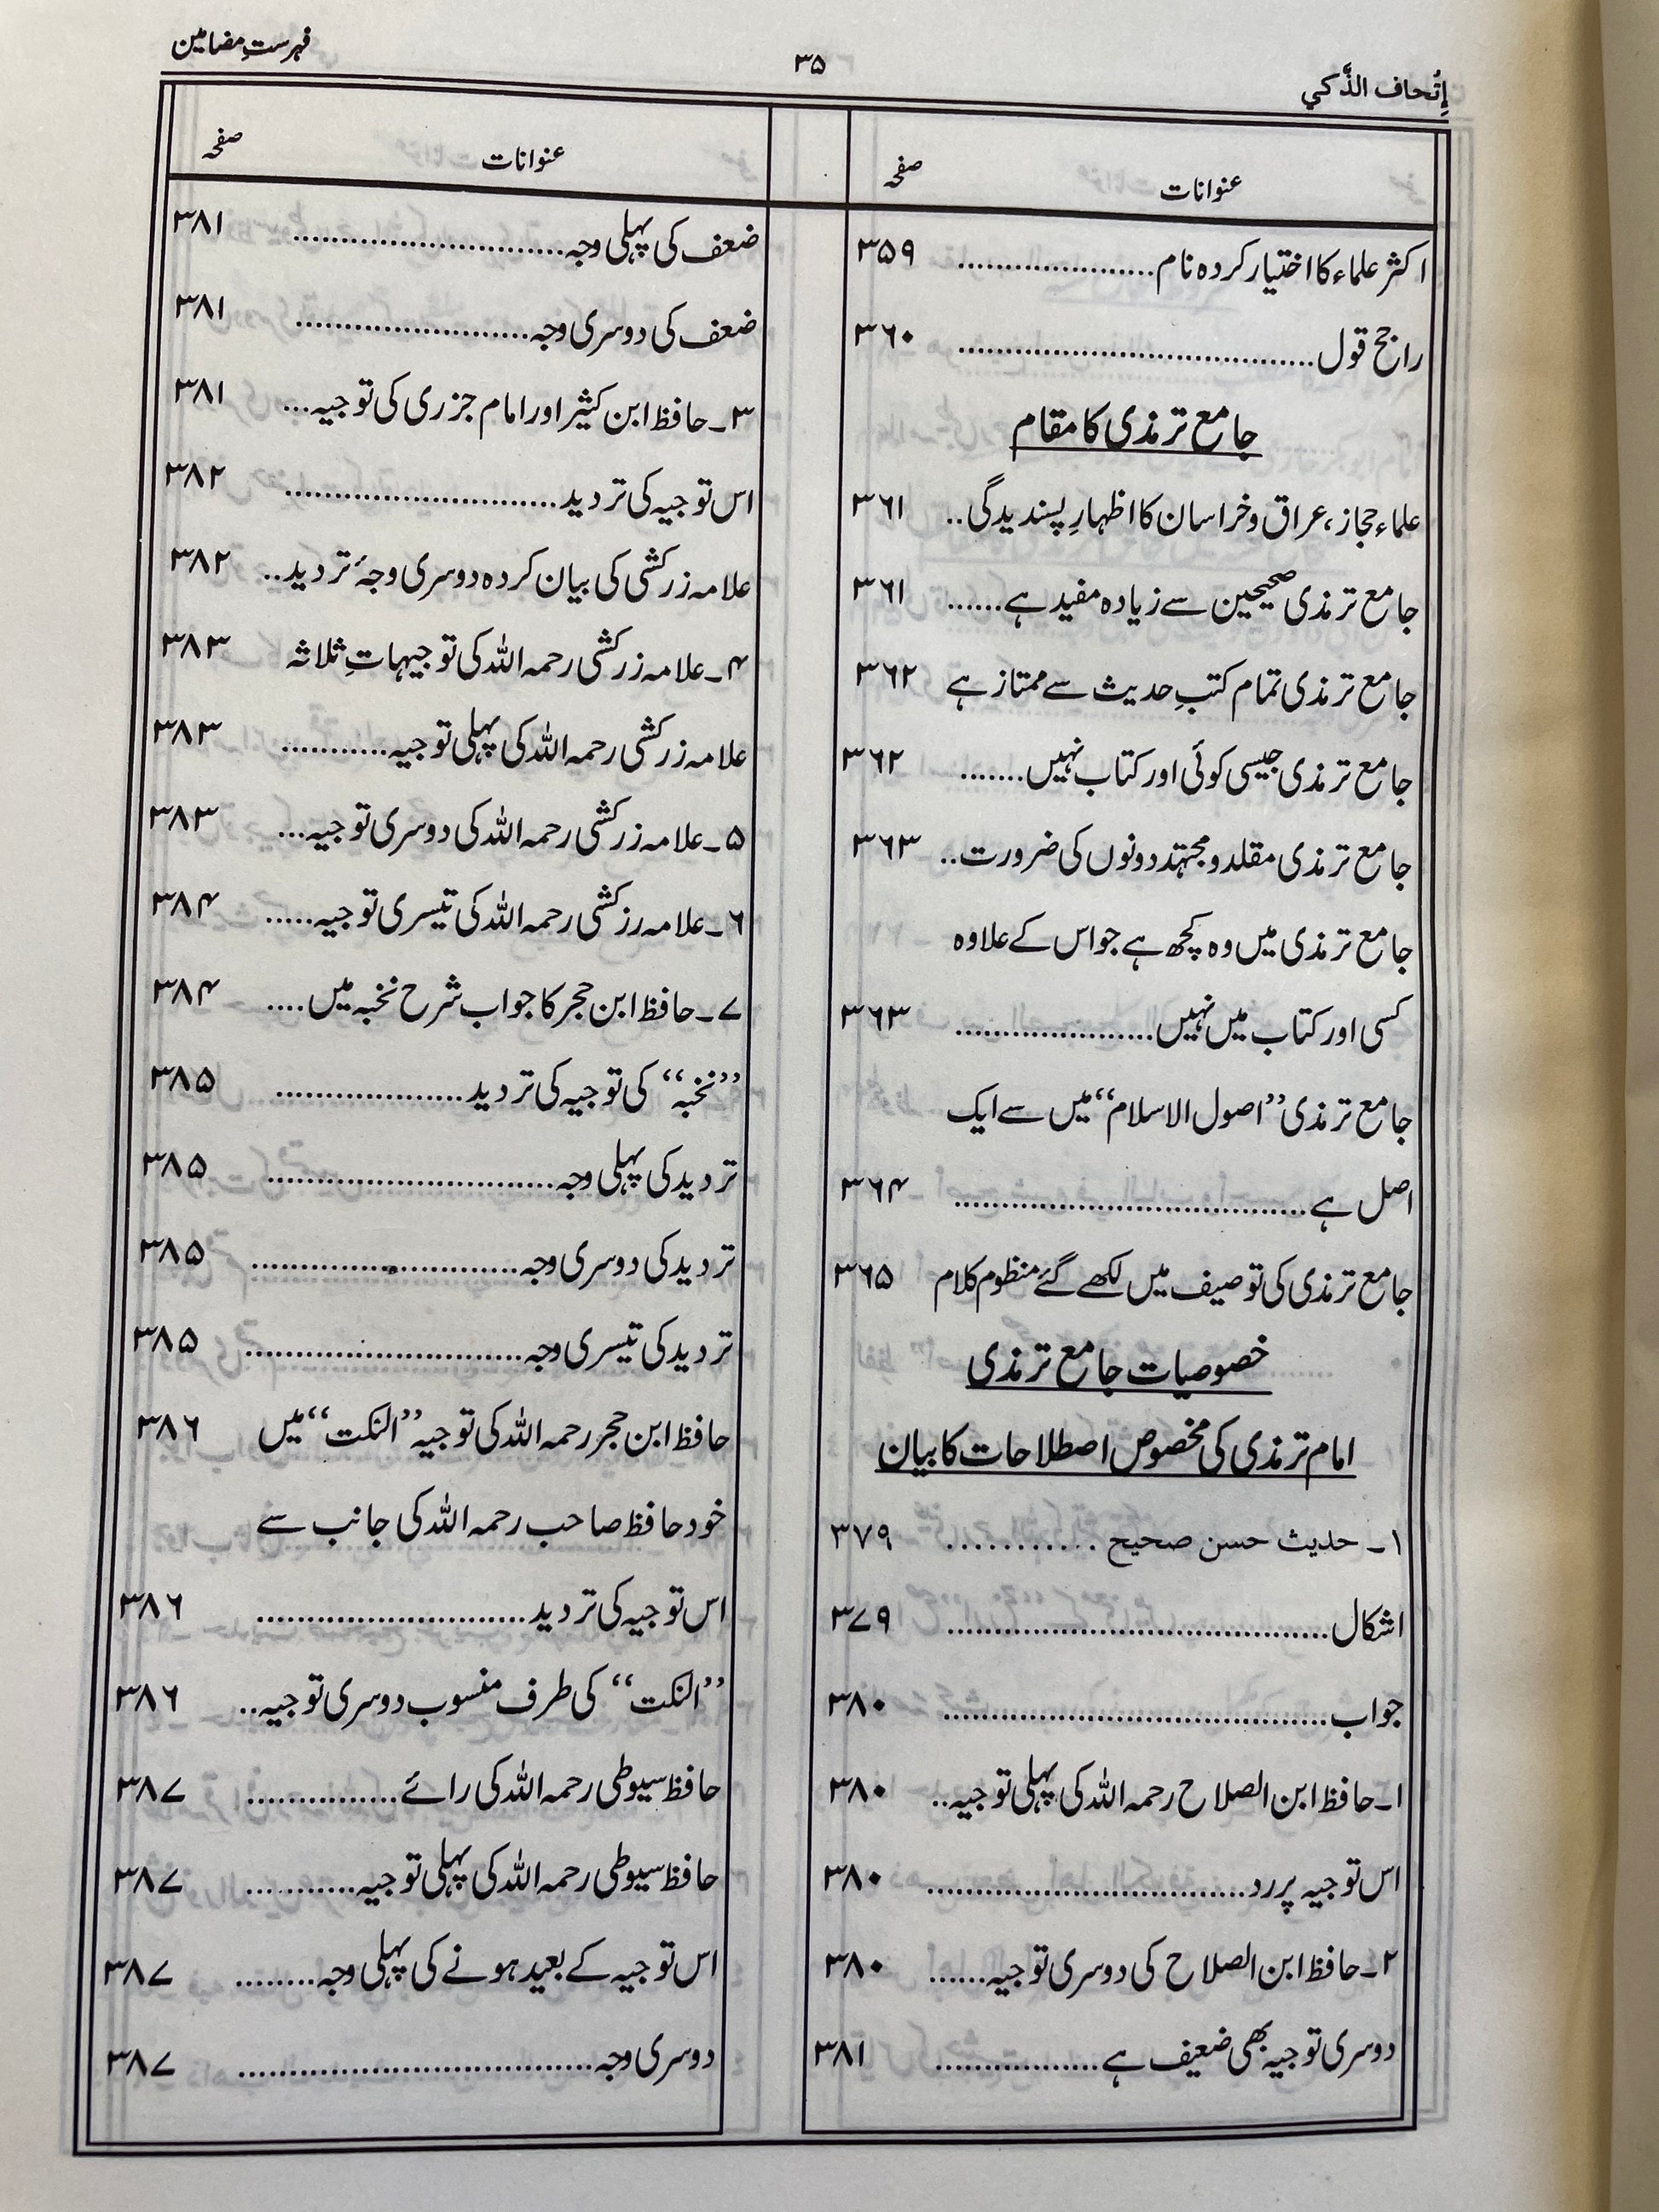 إتحاف الذَّكي
۳۵
فہرستِ مضامین
عنوانات صفحہ
اکثر علماء کا اختیار کردہ نام..................... ۳۵۹
راجح قول..................................... ۳۶۰
جامع ترمذی کا مقام
علماء حجاز، عراق وخراسان کا اظہارِ پسندیدگی.. ۳۶۱
جامع ترمذی صحیحین سے زیادہ مفید ہے...... ۳۶۱
جامع ترمذی تمام کتبِ حدیث سے ممتاز ہے ۳۶۲
جامع ترمذی جیسی کوئی اور کتاب نہیں....... ۳۶۲
جامع ترمذی مقلد و مجتہد دونوں کی ضرورت.. ۳۶۳
جامع ترمذی میں وہ کچھ ہے جو اس کے علاوہ
کسی اور کتاب میں نہیں..................... ۳۶۳
جامع ترمذی ”اصول الاسلام“ میں سے ایک
اصل ہے..................................... ۳۶۴
جامع ترمذی کی توصیف میں لکھے گئے منظوم کلام ۳۶۵
خصوصیات جامع ترمذی
امام ترمذی کی مخصوص اصطلاحات کا بیان
۱۔ حدیث حسن صحیح ........... ۳۷۹
اشکال........................................ ۳۷۹
جواب........................................ ۳۸۰
۱۔ حافظ ابن الصلاح رحمہ اللہ کی پہلی توجیہ.. ۳۸۰
اس توجیہ پر رد.................................. ۳۸۰
۲۔ حافظ ابن الصلاح کی دوسری توجیہ...... ۳۸۰
دوسری توجیہ بھی ضعیف ہے................. ۳۸۱
عنوانات صفحہ
ضعف کی پہلی وجہ............................ ۳۸۱
ضعف کی دوسری وجہ........................ ۳۸۱
۳۔ حافظ ابن کثیر اور امام جزری کی توجیہ... ۳۸۱
اس توجیہ کی تردید............................ ۳۸۲
علامہ زرکشی کی بیان کردہ دوسری وجۂ تردید.. ۳۸۲
۴۔ علامہ زرکشی رحمہ اللہ کی توجیہاتِ ثلاثہ ۳۸۳
علامہ زرکشی رحمہ اللہ کی پہلی توجیہ........... ۳۸۳
۵۔ علامہ زرکشی رحمہ اللہ کی دوسری توجیہ... ۳۸۳
۶۔ علامہ رزکشی رحمہ اللہ کی تیسری توجیہ..... ۳۸۴
۷۔ حافظ ابن حجر کا جواب شرح نخبہ میں.... ۳۸۴
”نخبہ“ کی توجیہ کی تردید.................... ۳۸۵
تردید کی پہلی وجہ.............................. ۳۸۵
تردید کی دوسری وجہ............................ ۳۸۵
تردید کی تیسری وجہ............................. ۳۸۵
حافظ ابن حجر رحمہ اللہ کی توجیہ ”النکت“ میں ۳۸۶
خود حافظ صاحب رحمہ اللہ کی جانب سے
اس توجیہ کی تردید............................ ۳۸۶
”النکت“ کی طرف منسوب دوسری توجیہ.. ۳۸۶
حافظ سیوطی رحمہ اللہ کی رائے................ ۳۸۷
حافظ سیوطی رحمہ اللہ کی پہلی توجیہ........... ۳۸۷
اس توجیہ کے بعید ہونے کی پہلی وجہ........ ۳۸۷
دوسری وجہ..................................... ۳۸۷